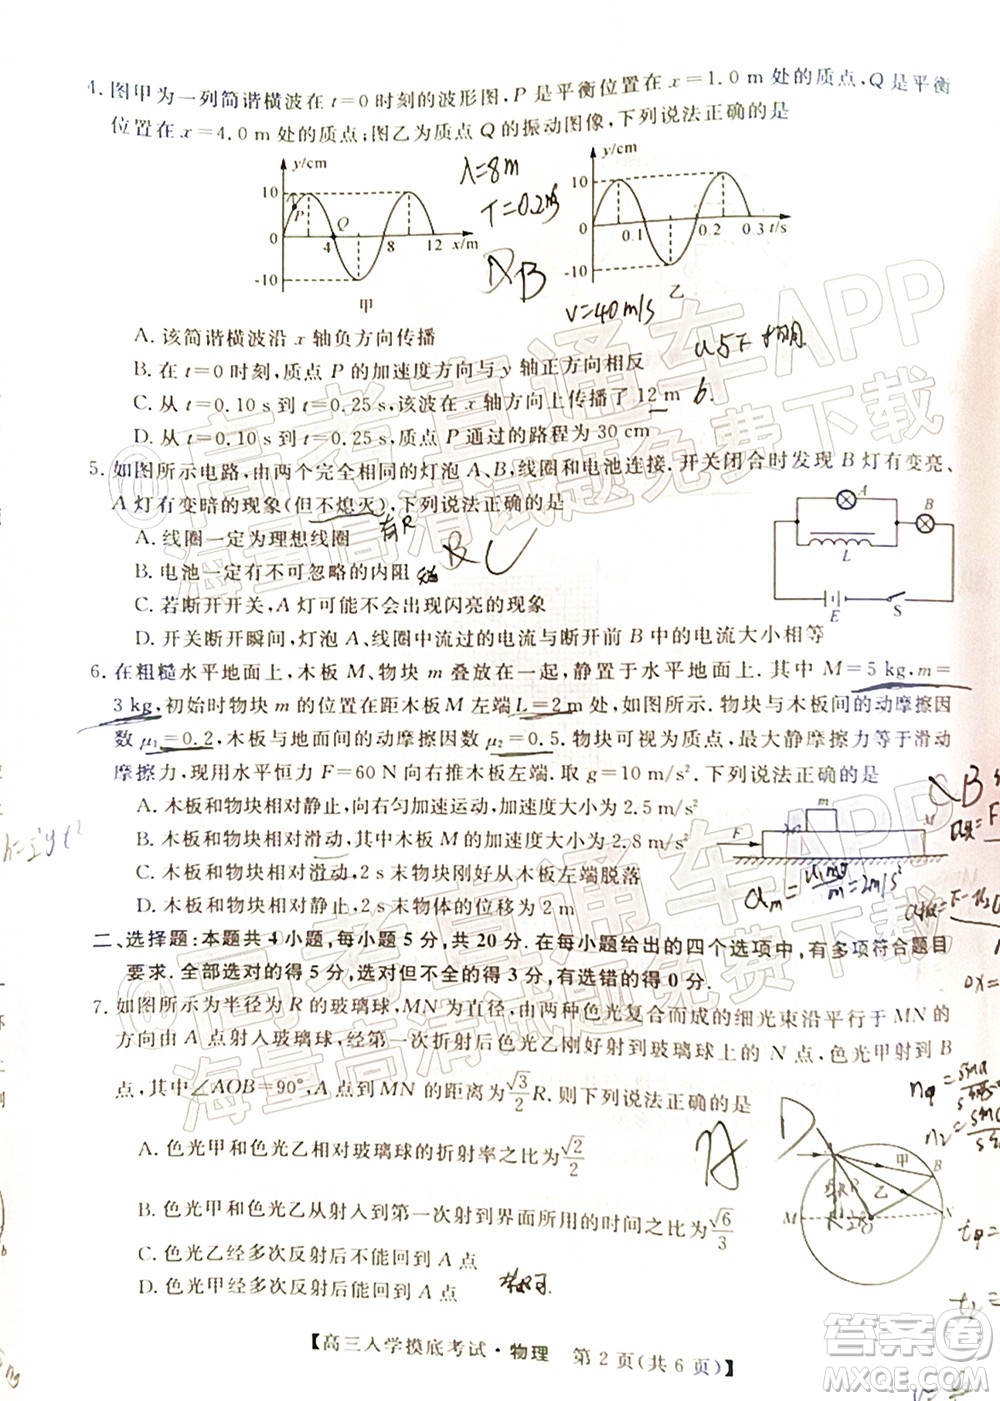 4. 图甲为一列简谐横波在 t=0 时刻的波形图，P 是平衡位置在 x=1.0 m 处的质点，Q 是平衡
位置在 x=4.0 m 处的质点；图乙为质点 Q 的振动图像，下列说法正确的是
y/cm
10
0
-10
P
Q
4
8
12
x/m
甲
λ=8m
T=0.2s
B
y/cm
10
0
-10
0.1
0.2
0.3
t/s
乙
v=40m/s
A. 该简谐横波沿 x 轴负方向传播
B. 在 t=0 时刻，质点 P 的加速度方向与 y 轴正方向相反
C. 从 t=0.10 s 到 t=0.25 s，该波在 x 轴方向上传播了 12 m 6.
D. 从 t=0.10 s 到 t=0.25 s，质点 P 通过的路程为 30 cm
5. 如图所示电路，由两个完全相同的灯泡 A、B，线圈和电池连接. 开关闭合时发现 B 灯有变亮、
A 灯有变暗的现象(但不熄灭)，下列说法正确的是
A. 线圈一定为理想线圈 有R
B. 电池一定有不可忽略的内阻
C. 若断开开关，A 灯可能不会出现闪亮的现象
D. 开关断开瞬间，灯泡 A、线圈中流过的电流与断开前 B 中的电流大小相等
B C
A
B
L
E
S
6. 在粗糙水平地面上，木板 M、物块 m 叠放在一起，静置于水平地面上. 其中 M=5 kg，m=
3 kg，初始时物块 m 的位置在距木板 M 左端 L=2 m 处，如图所示. 物块与木板间的动摩擦因
数 μ₁=0.2，木板与地面间的动摩擦因数 μ₂=0.5. 物块可视为质点，最大静摩擦力等于滑动
摩擦力，现用水平恒力 F=60 N 向右推木板左端. 取 g=10 m/s². 下列说法正确的是
A. 木板和物块相对静止，向右匀加速运动，加速度大小为 2.5 m/s²
B. 木板和物块相对滑动，其中木板 M 的加速度大小为 2.8 m/s²
C. 木板和物块相对滑动，2 s 末物块刚好从木板左端脱落
D. 木板和物块相对静止，2 s 末物体的位移为 2 m
F
m
M
B
二、选择题：本题共 4 小题，每小题 5 分，共 20 分. 在每小题给出的四个选项中，有多项符合题目
要求. 全部选对的得 5 分，选对但不全的得 3 分，有选错的得 0 分.
7. 如图所示为半径为 R 的玻璃球，MN 为直径，由两种色光复合而成的细光束沿平行于 MN 的
方向由 A 点射入玻璃球，经第一次折射后色光乙刚好射到玻璃球上的 N 点，色光甲射到 B
点，其中∠AOB=90°，A 点到 MN 的距离为 √3/2 R. 则下列说法正确的是
A. 色光甲和色光乙相对玻璃球的折射率之比为 √2/2
B. 色光甲和色光乙从射入到第一次射到界面所用的时间之比为 √6/3
C. 色光乙经多次反射后不能回到 A 点
D. 色光甲经多次反射后能回到 A 点
甲
乙
B
M
N
【高三入学摸底考试·物理 第 2 页(共 6 页)】
@高考直通车APP
海量高清试题免费下载
@高考直通车APP
海量高清试题免费下载
答案圈
MXQE.COM